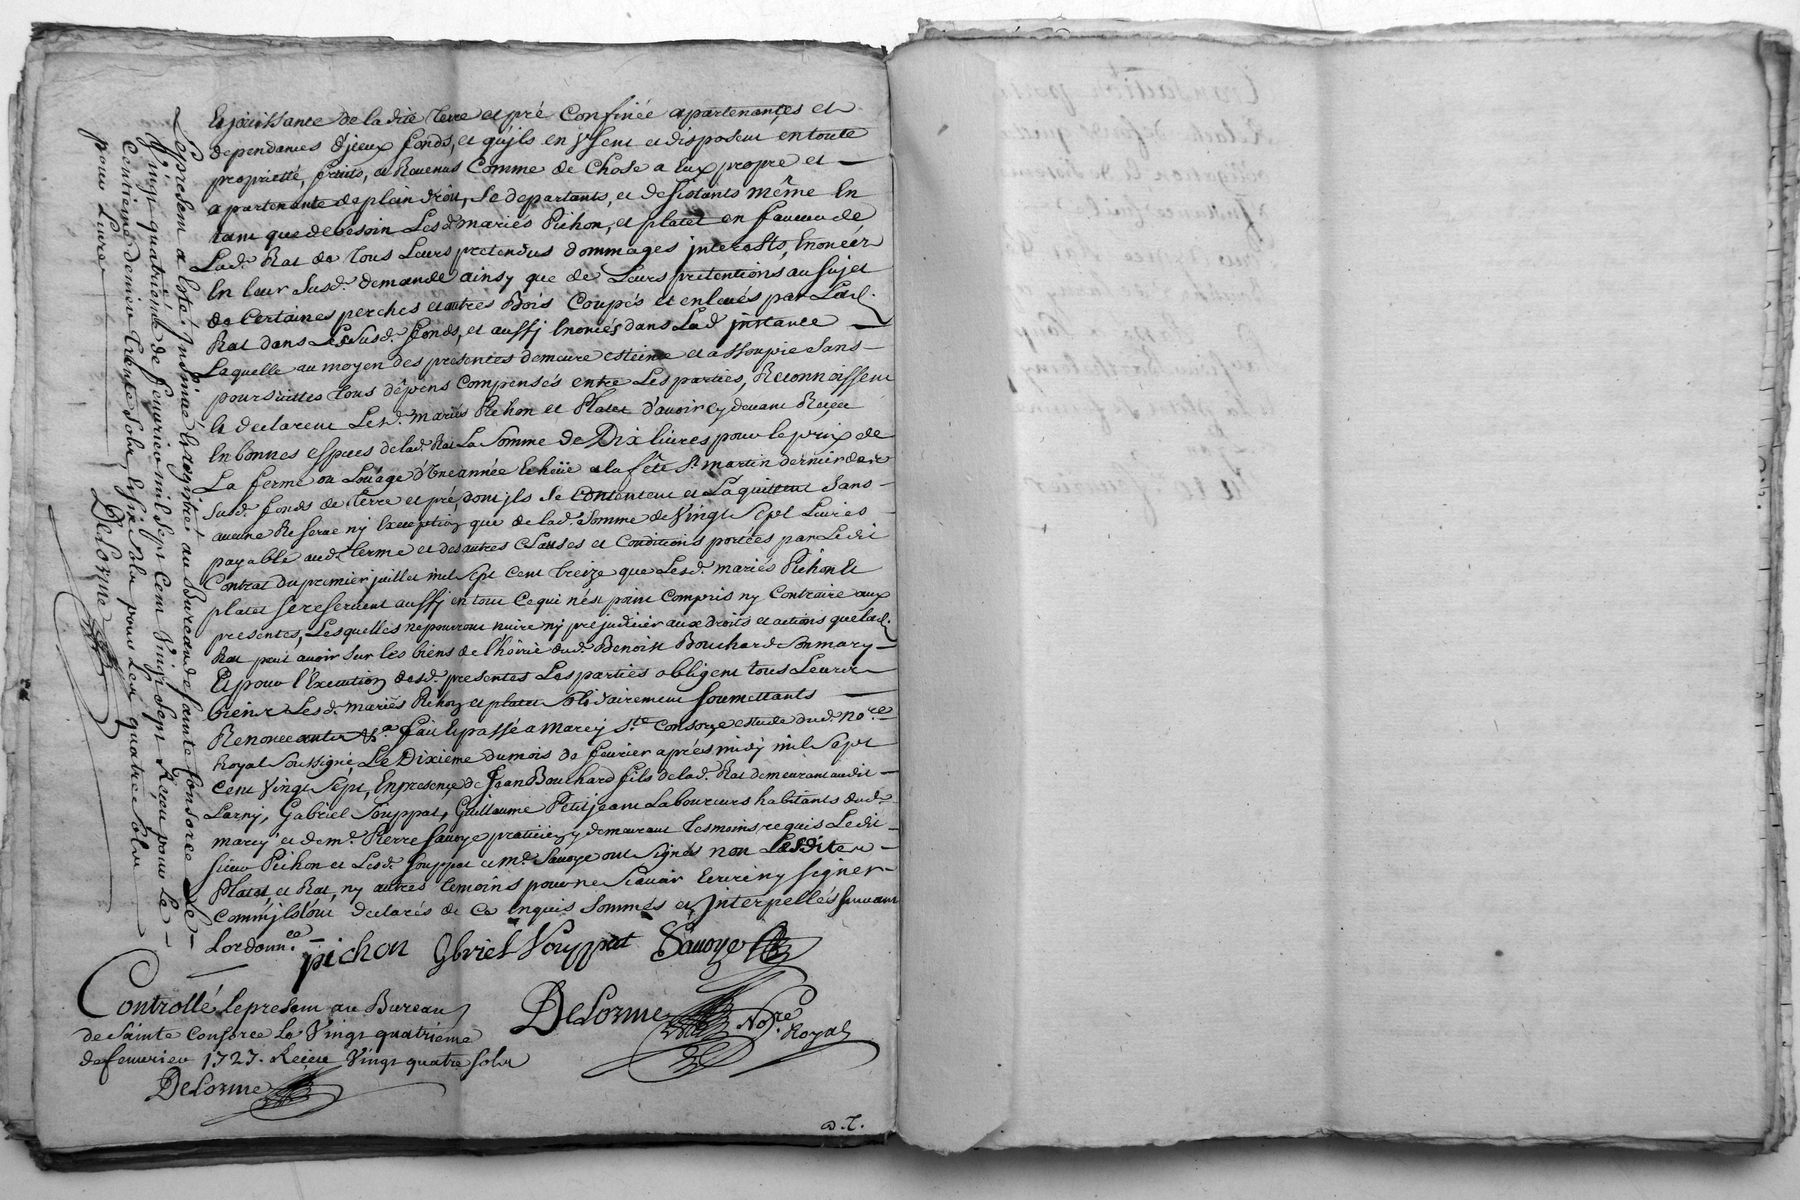 Et jouissante de la dite terre et pré Confinée apartenances et
dependances d'jceux fonds, et qu'ils en jusent et disposent en toute
proprietté, fruits, et Revenus Comme de Chose a Eux propre et
apartenante de plein droit, Se departants, et desistants même En
tant que de besoin Lesd. mariés Pichon, et platet en faveur de
Lad. Rat de tous Leurs pretendus dommages interests, Enoncés
En leur Susd. demande ainsy que de Leurs pretentions au Sujet
de Certaines perches et autres Bois Coupés et enlevés par Lad.
Rat dans Les Susd. fonds, et aussj Enoncés dans Lad. jnstance
Laquelle au moyen des presentes demeure esteinte et assoupie Sans
poursuittes tous dépens Compensés entre Les parties, Reconnoissent
Et declarent Lesd. mariés Pichon et Platet d'avoir cy devant Reçeu
En bonnes especes de lad. Rat La Somme de Dix livres pour le prix de
La ferme ou Loüage d'Une année Echeüe a la fête St. martin dernier de
Susd. fonds de terre et pré dont jls Se Contentent et La quittent Sans
aucune Reserve nj Exception que de lad. Somme de Vingt Sept Livres
payable aud. terme et des autres Clauses et Conditions portées par Ledit
Contrat du premier juillet mil Sept Cent treize que Lesd. mariés Pichon Et
platet Se reservent aussj en tout Ce qui n'est point Compris ny Contraire aux
presentes, Lesquelles ne pourront nuire nj prejudicier aux droits et actions que lad.
Rat peut avoir Sur les biens de l'hoirie dud. Benoist Bouchard Son mary
Et pour l'Execution desd. presentes Les parties obligent tous Leurs
biens Lesd. mariés Pichon et platet Solidairement Soumettants
Renonceants &a. fait et passé a marcy Ste. Consorce estude dud. nore.
Royal Soussigné, Le Dixieme du mois de fevrier après midy mil Sept
Cent Vingt Sept, En presence de Jean Bouchard fils de lad. Rat demeurant audit
Larny, Gabriel Souppat, Guillaume Petitjean Laboureurs habitants dud.
marcy et de me. Pierre Savoye praticien y demeurant temoins requis Ledit
Sieur Pichon et Lesd. Souppat et me. Savoye ont Signés non Lesdites
Platet, et Rat, ny autres temoins pour ne Scavoir Ecrire ny Signer
Comm'jls ont declarés de Ce enquis Sommés et jnterpellés Suivant
Lordonnce.
pichon Gbriel Souppat Savoye
Controllé le present au Bureau
de Sainte Consorce Le Vingt quatrieme
de fevrier 1727. Reçeu Vingt quatre Sols
DeLorme
DeLorme Nore. Royal
Le present a Esté jnsinué et registré au Bureau de Sainte Consorce Le
Vingt quatrieme de fevrier mil Sept Cent Vingt Sept Reçeu pour Le
Centieme denier trente Sols, Et Six Sols pour Les quatre Sols
pour Livre
DeLorme